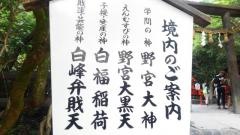 境内のご案内
学問の神
野宮大神
えんむすびの神
野宮大黒天
子授・安産の神
白福稲荷
財運と芸能の神
白峰弁財天